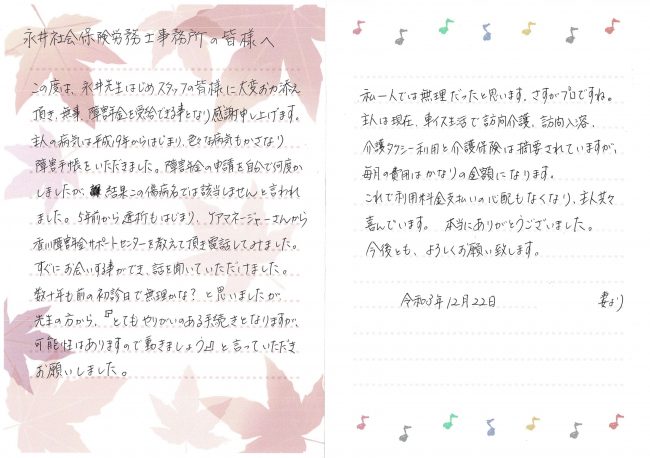 永井社会保険労務士事務所の皆様へ
この度は、永井先生はじめスタッフの皆様に大変お力添え
頂き、無事、障害年金を受給できる事となり感謝申し上げます。
主人の病気は平成19年からはじまり、色々な病気もかさなり
障害手帳をいただきました。障害年金の申請を自分で何度か
しましたが、結果この傷病名では該当しませんと言われ
ました。5年前から透析もはじまり、ケアマネージャーさんから
香川障害年金サポートセンターを教えて頂き電話してみました。
すぐにお会いする事ができ、話を聞いていただけました。
数十年も前の初診日で無理かな?と思いましたが
先生の方から、『とてもやりがいのある手続きとなりますが、
可能性はありますので動きましょう』と言っていただき
お願いしました。
私一人では無理だったと思います。さすがプロですね。
主人は現在、車イス生活で訪問介護、訪問入浴、
介護タクシー利用と介護保険は摘要されていますが、
毎月の費用はかなりの金額になります。
これで利用料金支払いの心配もなくなり、主人共々
喜んでいます。本当にありがとうございました。
今後とも、よろしくお願い致します。
令和3年12月22日 妻より